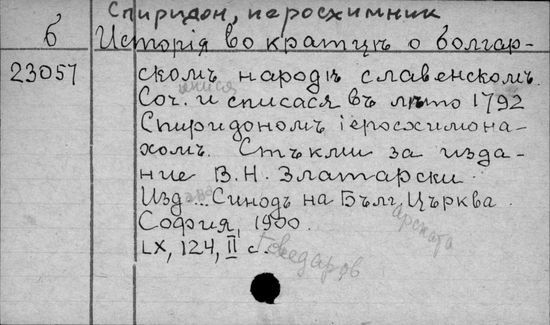 Спиридон, иеросхимник
б Исторія во кратцѣ о болгар-
23057 скомъ народѣ славенскомъ.
Соч. и списася въ лѣто 1792
Спиридономъ іеросхимона-
хомъ. Стъкми за изда-
ние В. Н. Златарски
Изд... Синодъ на Бълг. Църква.
София, 1900.
LX, 124, II с.